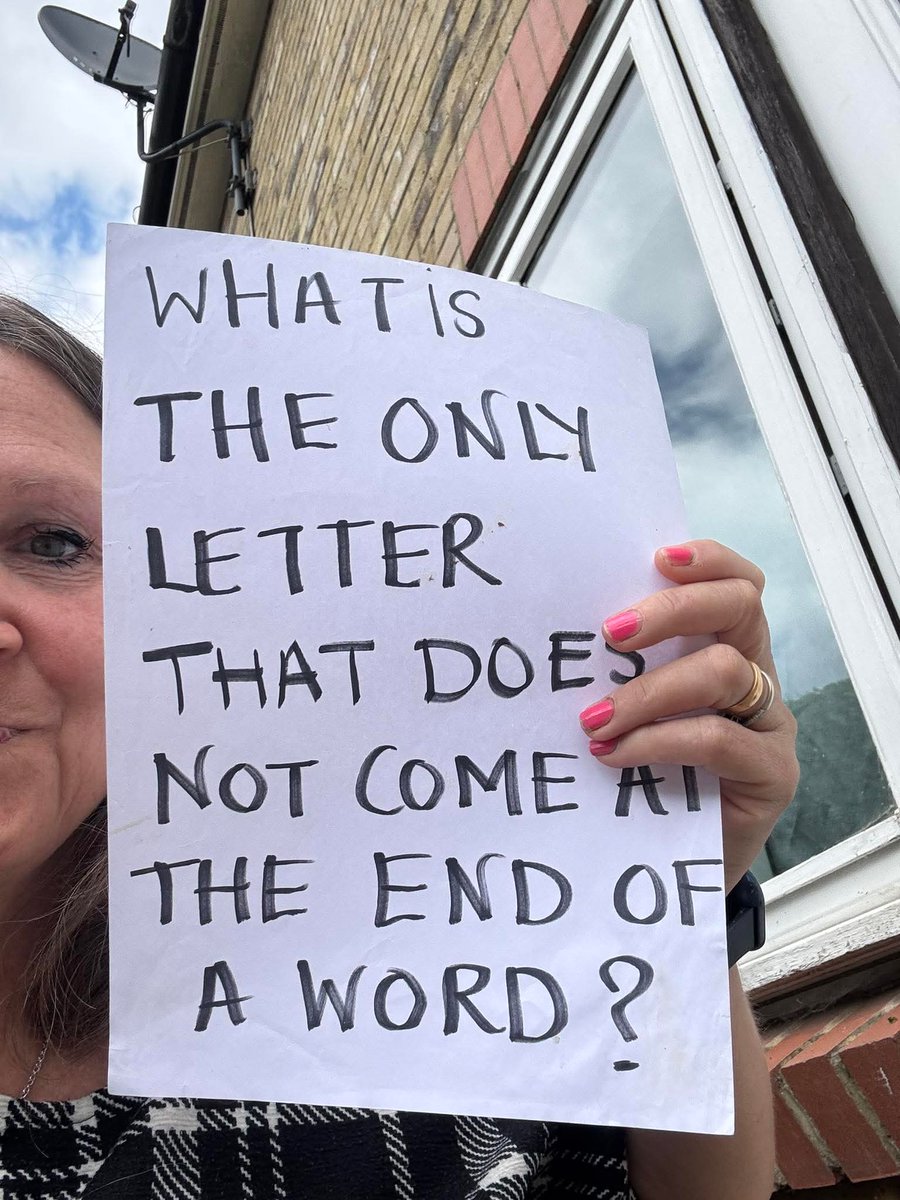 WHAT IS
THE ONLY
LETTER
THAT DOES
NOT COME AT
THE END OF
A WORD?